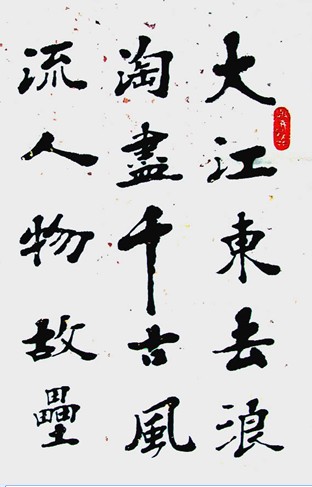 大江東去浪
淘盡千古風
流人物故壘